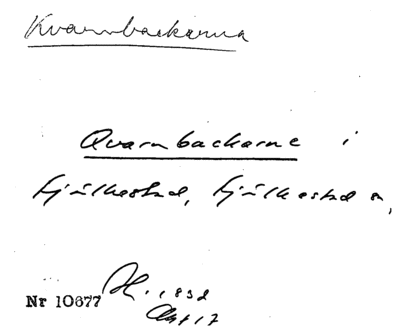 Kvarnbackarna
Qvarnbackarne i
Fjälkestad, Fjälkestad sn,
Nr 10677 1832
Akt 17